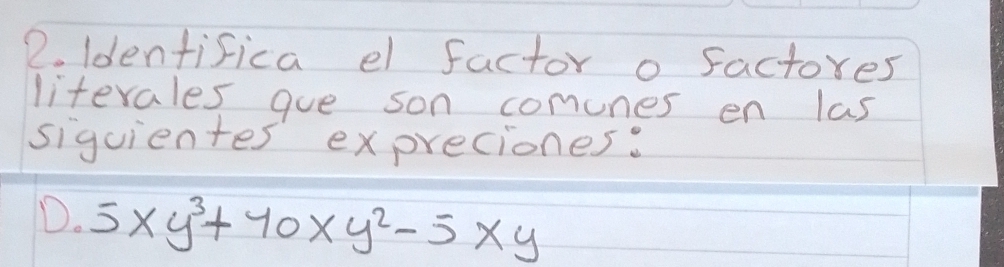 2. Identifica el factor o factores
literales que son comunes en las
siguientes expreciones:
D. 5xy³+10xy²-5xy